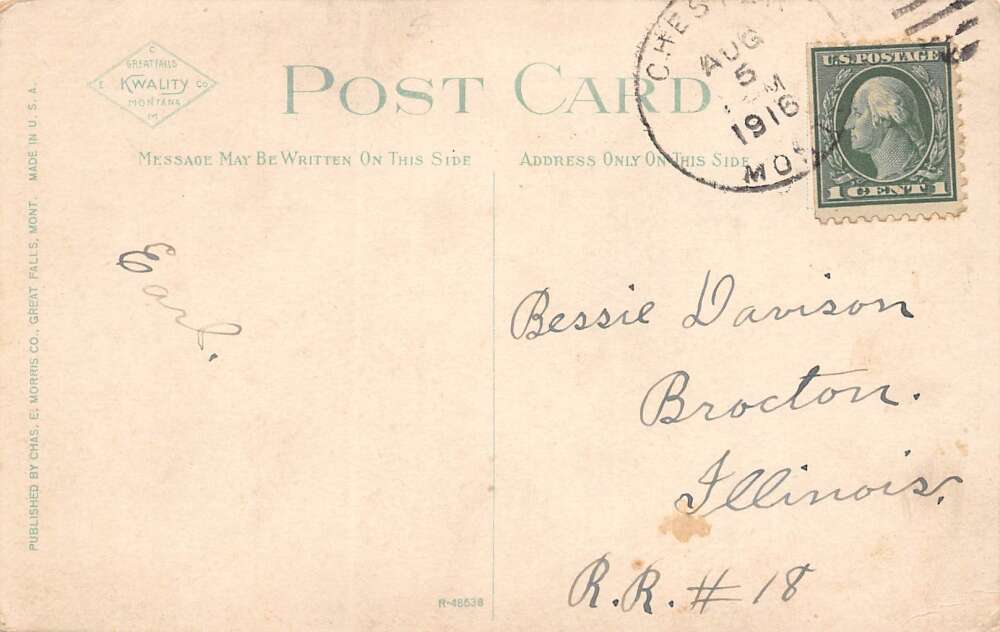 C
GREAT FALLS
E KWALITY Co
MONTANA
M
POST CARD
MESSAGE MAY BE WRITTEN ON THIS SIDE
ADDRESS ONLY ON THIS SIDE
AUG
5
M
1916
U.S. POSTAGE
1 CENT 1
PUBLISHED BY CHAS. E. MORRIS CO., GREAT FALLS, MONT. MADE IN U.S.A.
Earl.
Bessie Davison
Brocton.
Illinois.
R.R. # 18
R-48638